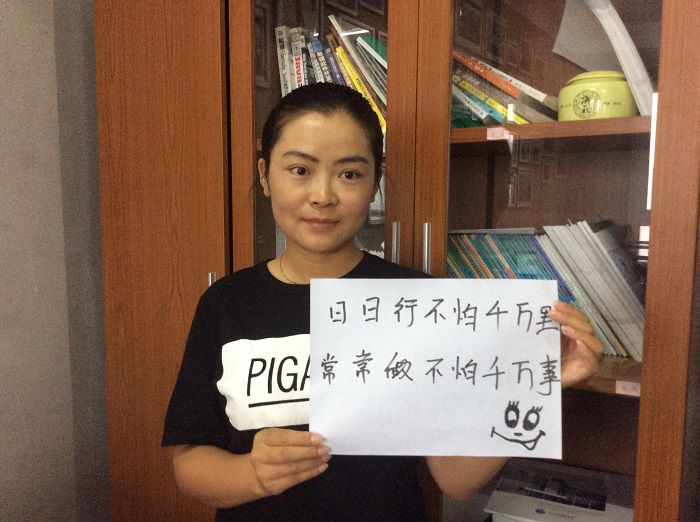 日日行不怕千万里
常常做不怕千万事
PIGA